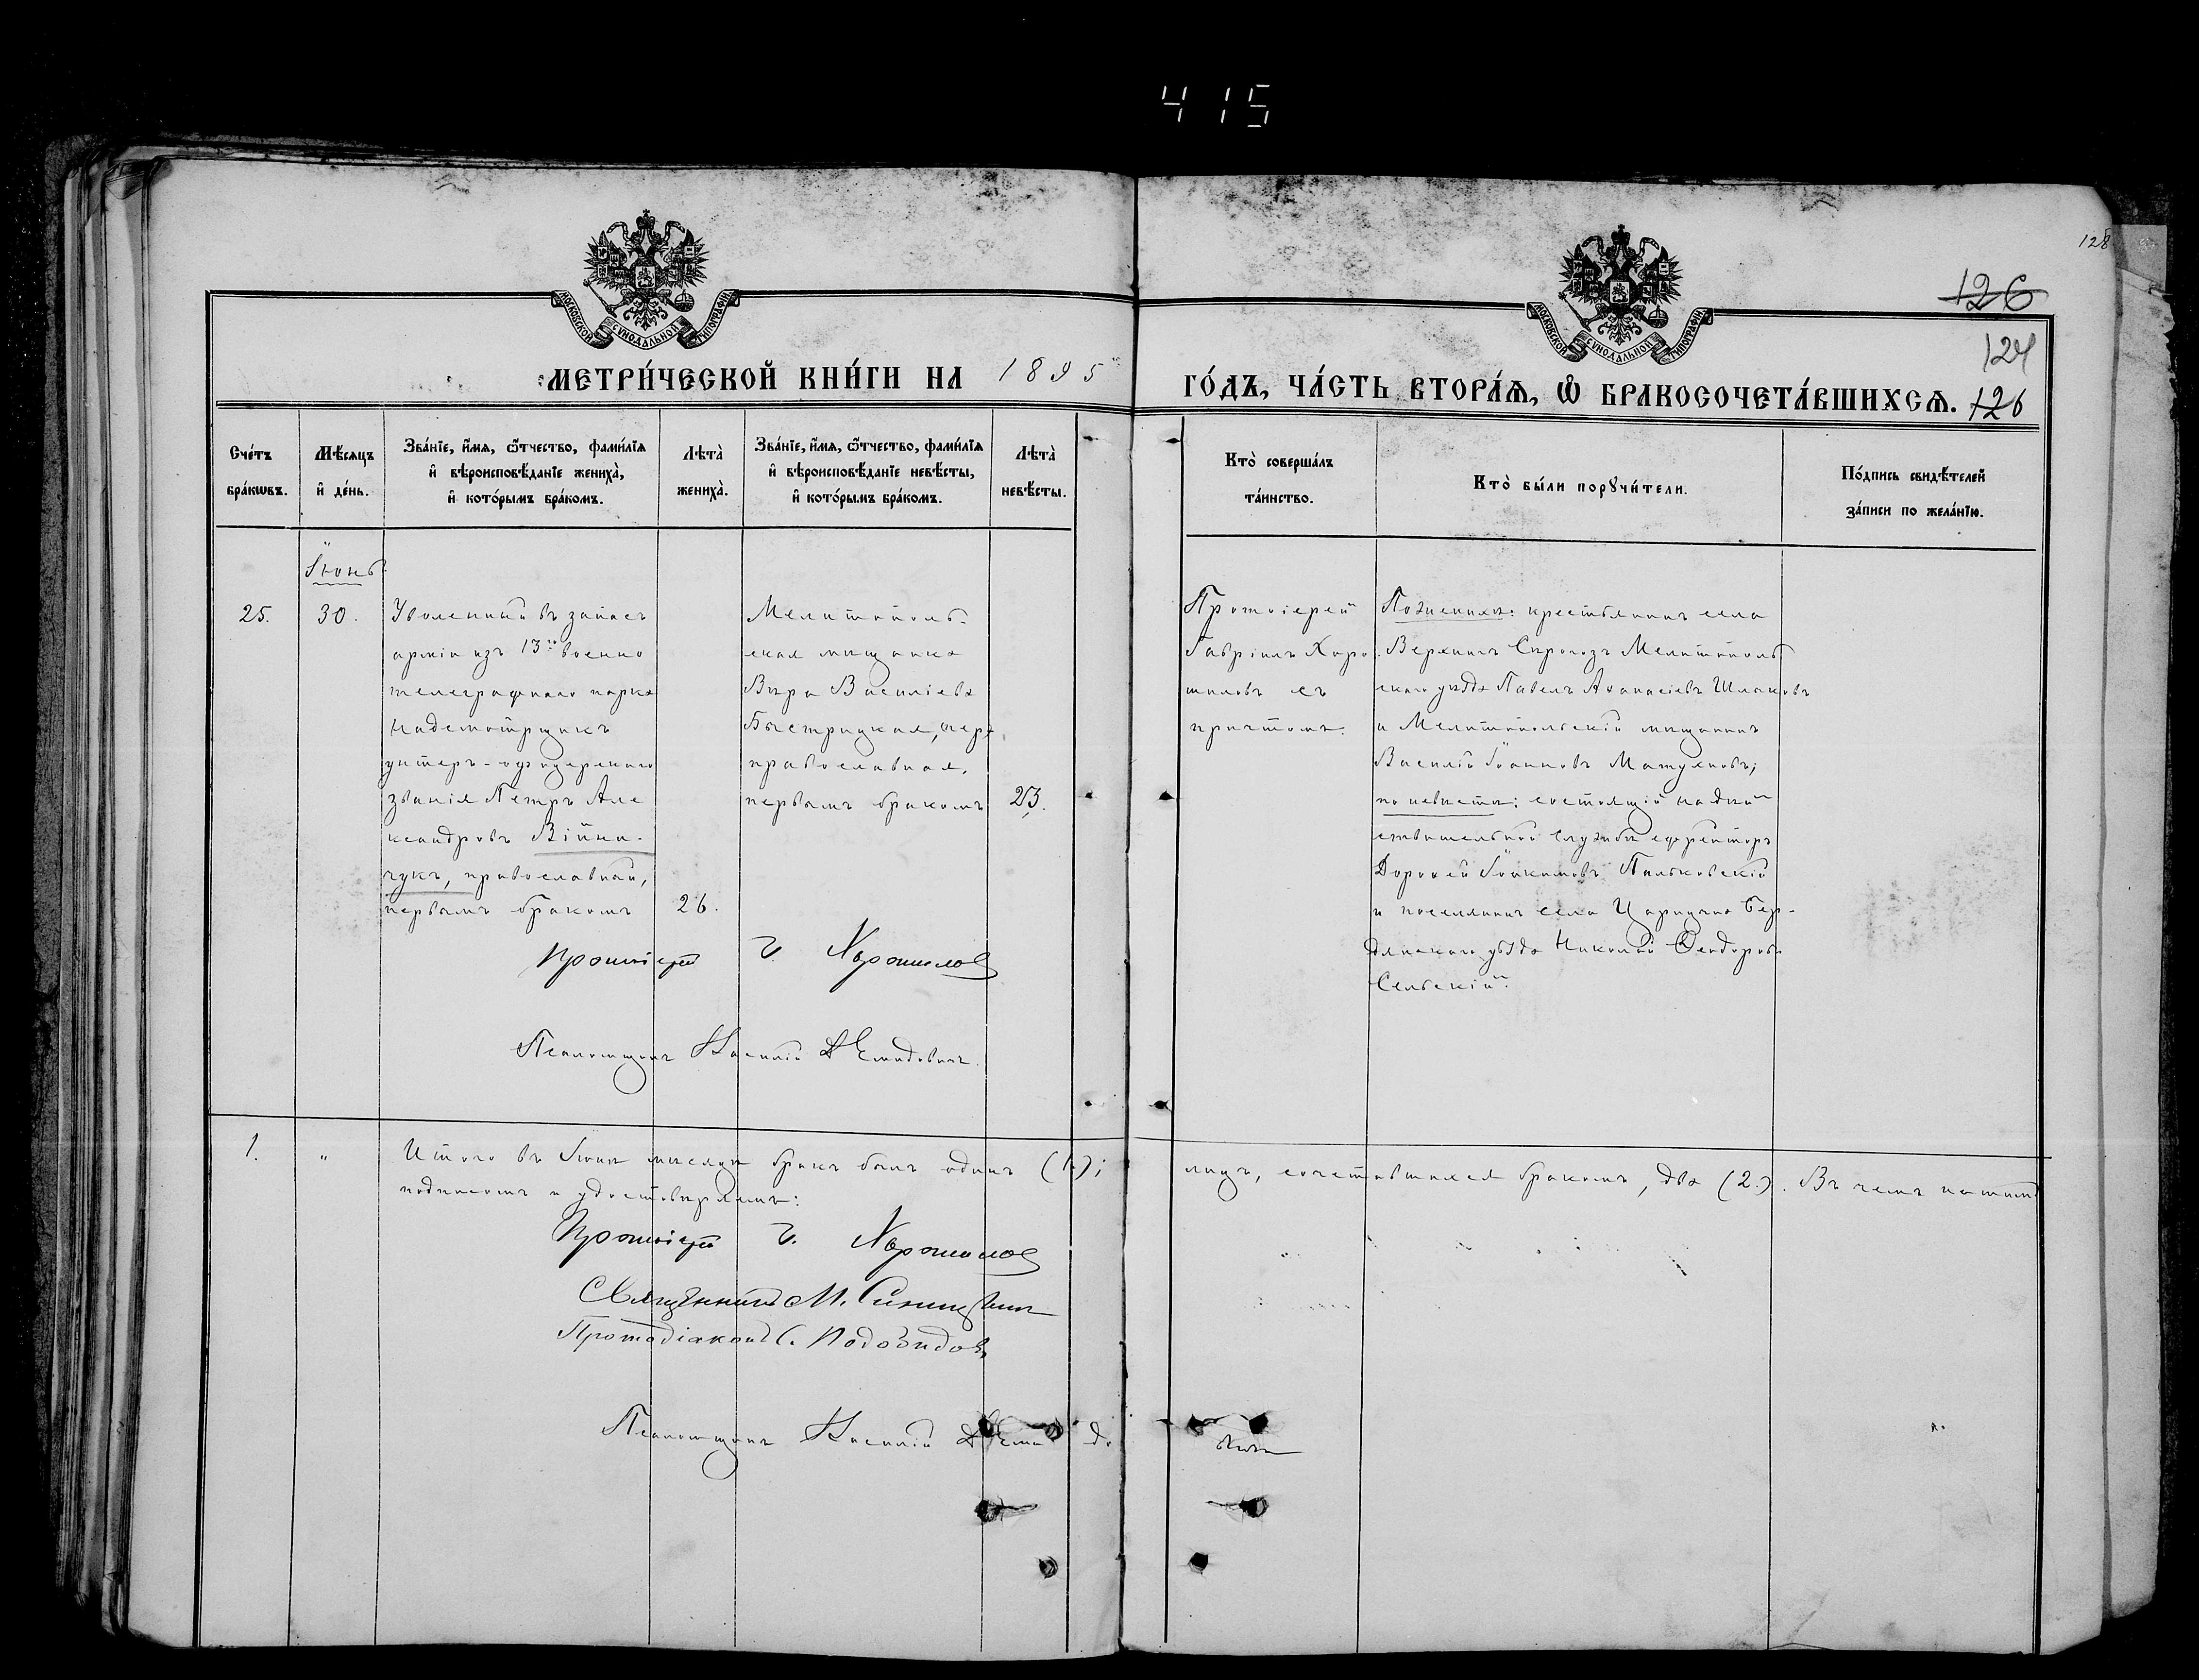 415
128
126
124
126
МОСКОВСКОЙ СѴНОДАЛЬНОЙ ТИПОГРАФІИ
МОСКОВСКОЙ СѴНОДАЛЬНОЙ ТИПОГРАФІИ
МЕТРИ́ЧЕСКОЙ КНИ́ГИ НА 1895
ГО́ДЪ, ЧА́СТЬ ВТОРА́Ѧ, Ѽ БРАКОСОЧЕТА́ВШИХСѦ.
Сче́тъ
бра́кѡвъ.
Мѣ́сяцъ
и҆ де́нь.
Зва́нїе, и҆́мя, ѻ҆́тчество, фами́лїя
и҆ вѣроисповѣ́данїе жениха̀,
и҆ кото́рымъ бра́комъ.
Лѣта̀
жениха̀.
Зва́нїе, и҆́мя, ѻ҆́тчество, фами́лїя
и҆ вѣроисповѣ́данїе невѣ́сты,
и҆ кото́рымъ бра́комъ.
Лѣта̀
невѣ́сты.
Кто̀ соверша́лъ
та́инство.
Кто̀ бы́ли порꙋчи́тели.
По́дпись свидѣ́телей
за́писи по жела́нїю.
Іюнь
25.
30.
Уволенный въ запасъ
арміи изъ 13го военно
телеграфнаго парка
надсмотрщикъ
унтеръ-офицерскаго
званія Петръ Але
ксандровъ Війни-
чукъ, православный,
первымъ бракомъ
26.
Мелитополь-
ская мѣщанка
Вѣра Василіева
Быстрицкая,
православная,
первымъ бракомъ
23.
Протоіерей
Гавріилъ Харо
шиловъ съ
причтомъ.
По женихѣ: крестьянинъ села
Верхнихъ Сѣрогозъ Мелитополь
скаго уѣзда Павелъ Аѳанасіевъ
и Мелитопольскій мѣщанинъ
Василій Іоанновъ
по невѣстѣ: состоящій на дѣй
ствительной службѣ ефрейторъ
Дороѳей Іоакимовъ Пальковскій
и поселянинъ села Царицына Бер-
дянскаго уѣзда Николай Ѳеодоровъ
Сельскій.
Протоіерей Г. Харошиловъ
Псаломщикъ Василій Демидовичъ
1.
"
Итого въ Іюнѣ мѣсяцѣ бракъ былъ одинъ (1.); лицъ, сочетавшихся бракомъ, два (2.). Въ чемъ нашимъ
подписомъ и удостовѣряемъ:
Протоіерей Г. Харошиловъ
Священникъ М.
Протодіаконъ С.
Псаломщикъ Василій Демидовичъ